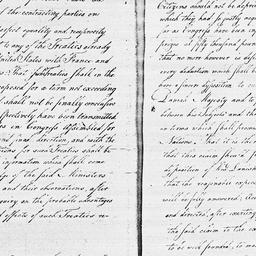 of the contracting parties on
respect equality and reciprocity
to any of the Treaties already
United States with France and
That such Treaties shall in the
proposed for a term not exceeding
shall not be finally conclusive
respectively have been transmitted
in Congress Assembled for
final direction, and with the
for such Treaties shall be
information which shall come
of the said Ministers
and their observations, after
enquiry on the probable advantages
effects of such Treaties re
Citizens should not be deprived
which they had so justly
for as Congress have been
prizes at fifty thousand
that no more however is
every deduction which shall
more sincere disposition to
Danish Majesty and to
between his Subjects and the
in terms which shall
Nations. that it is the
that this claim from a
disposition of his Danish
that the reasonable
will be fully answered.
and directed, after exerting
the said claim to the
to be well founded, to